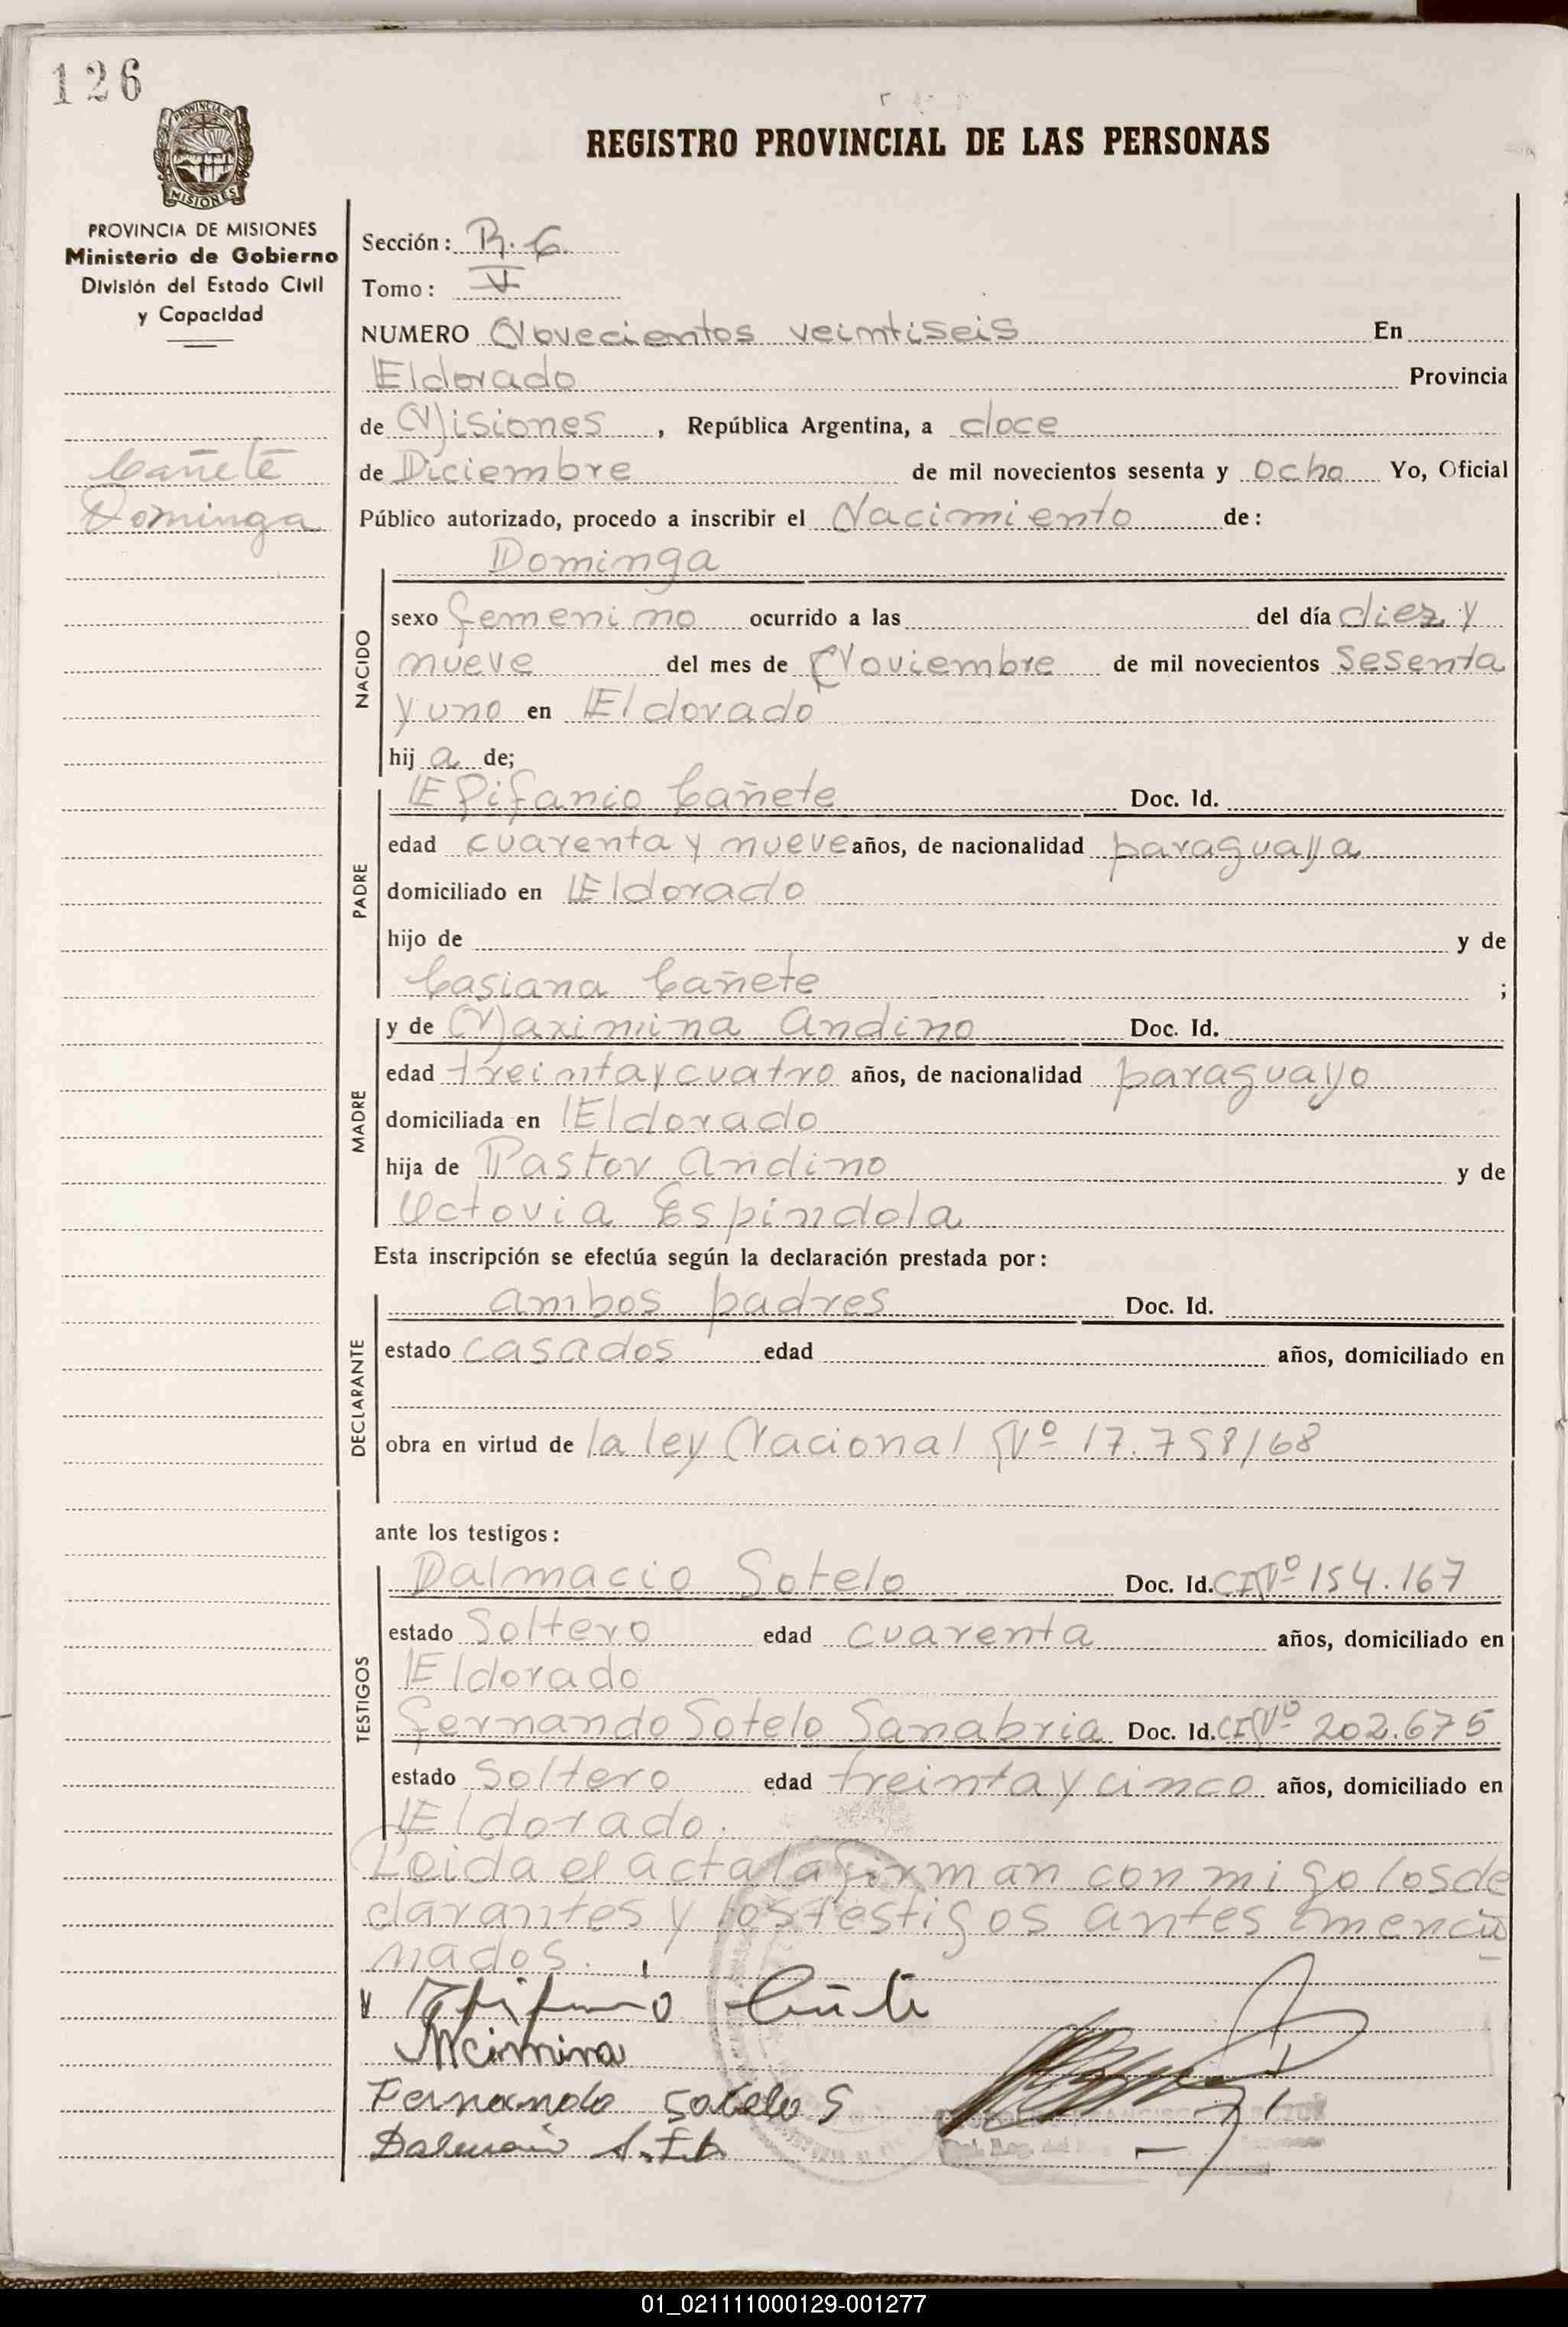 126
PROVINCIA DE
MISIONES
REGISTRO PROVINCIAL DE LAS PERSONAS
PROVINCIA DE MISIONES
Ministerio de Gobierno
División del Estado Civil
y Capacidad
Cañete
Dominga
Sección: R. C.
Tomo: V
NUMERO Novecientos veintiseis En
Eldorado Provincia
de Misiones, República Argentina, a doce
de Diciembre de mil novecientos sesenta y ocho Yo, Oficial
Público autorizado, procedo a inscribir el Nacimiento de:
Dominga
NACIDO
sexo femenino ocurrido a las del día diez y
nueve del mes de Noviembre de mil novecientos sesenta
y uno en Eldorado
hij a de;
PADRE
Epifanio Cañete Doc. Id.
edad cuarenta y nueve años, de nacionalidad paraguaya
domiciliado en Eldorado
hijo de y de
Casiana Cañete ;
MADRE
y de Maximina Andino Doc. Id.
edad treinta y cuatro años, de nacionalidad paraguayo
domiciliada en Eldorado
hija de Pastor Andino y de
Octovia Espindola
Esta inscripción se efectúa según la declaración prestada por:
DECLARANTE
ambos padres Doc. Id.
estado casados edad años, domiciliado en
obra en virtud de la ley Nacional Nº 17.758/68
ante los testigos:
TESTIGOS
Dalmacio Sotelo Doc. Id. CI Nº 154.167
estado Soltero edad cuarenta años, domiciliado en
Eldorado
Fernando Sotelo Sanabria Doc. Id. CI Nº 202.675
estado Soltero edad treinta y cinco años, domiciliado en
Eldorado.
Leida el acta la firman conmigo los de
clarantes y los testigos antes mencio
nados.
Epifanio Cañete
Mcimina
Fernando Sotelo S
01_021111000129-001277